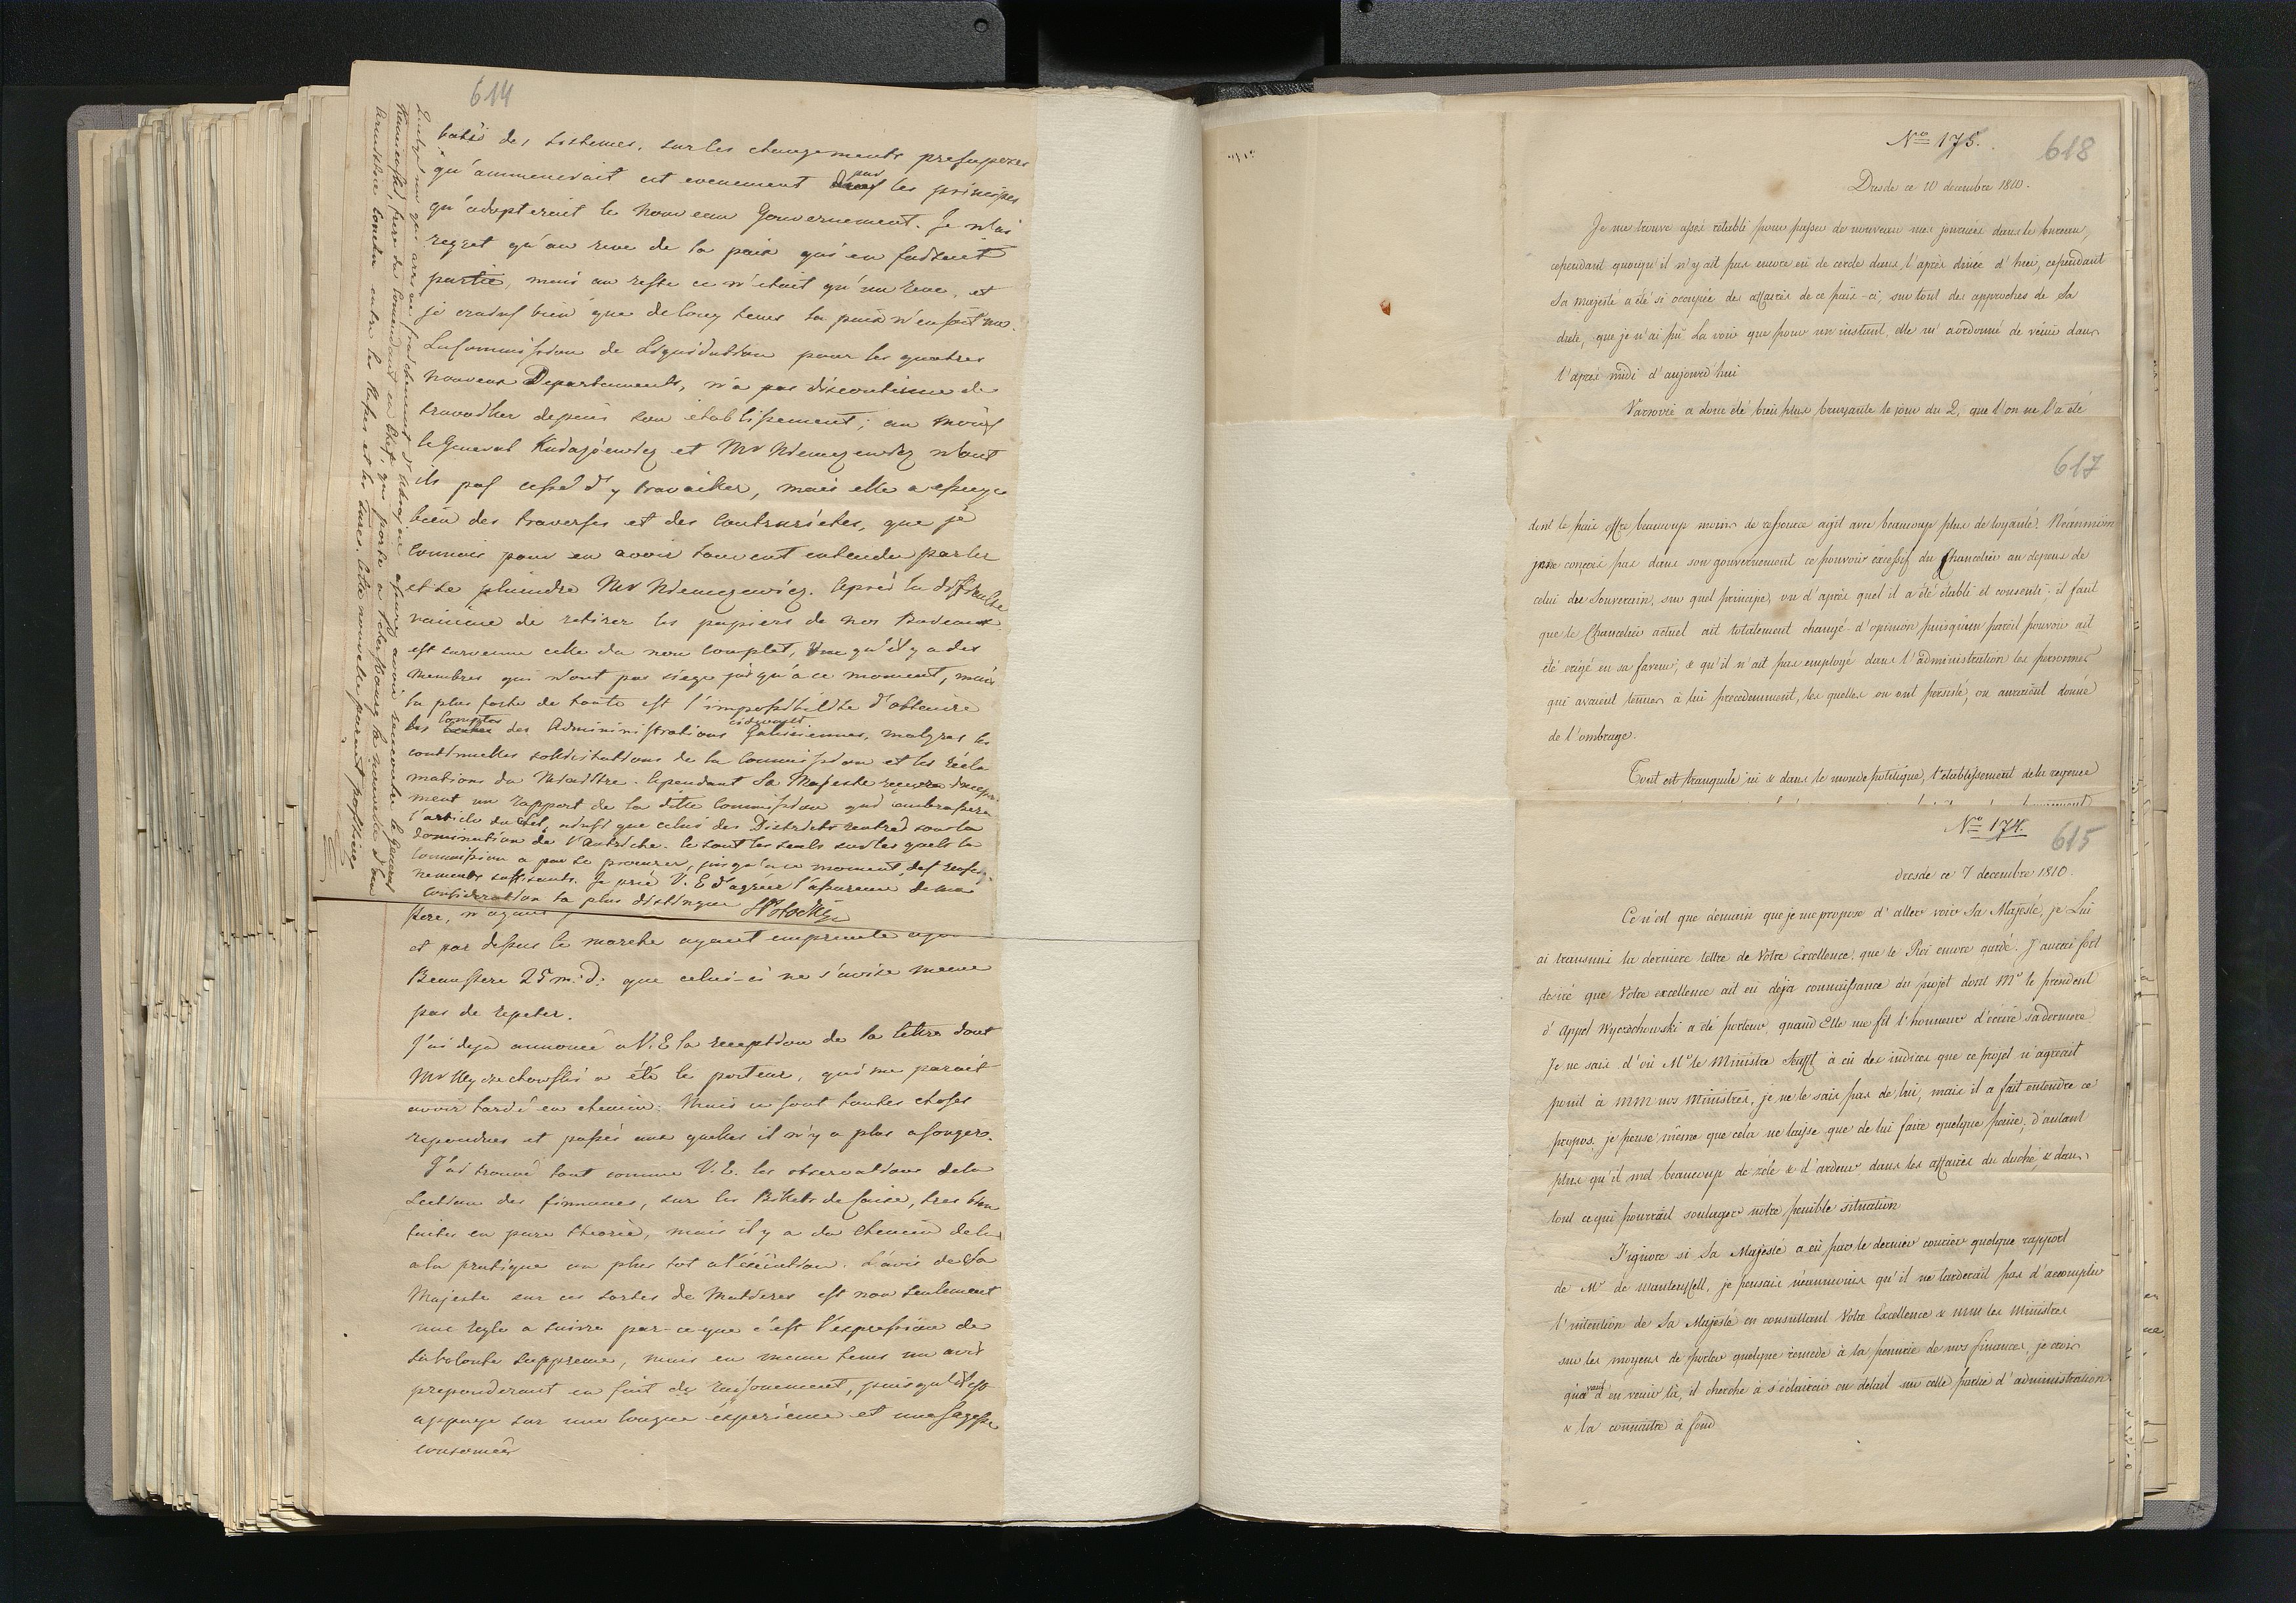 614
batié des sistemes, sur les changements presuposés
qu'ammenerait cet evenement par les principes
qu'adopterait le nouveau Gouvernement. Je n'ai
regret qu'au reve de la paix qui en faisait
partie, mais au reste ce n'etait qu'un reve, et
je crains bien que de long tems la paix n'en soit un.
La Commission de Liquidation pour les quatres
nouveaux Departements, n'a pas discontinue de
travailler depuis son etablissement; au moins
le General et Mr Niemcewicz n'ont
ils pas cessé d'y travailler, mais elle a essuye
bien des traverses et des contrarietes, que je
connais pour en avoir souvent entendu parler
et se plaindre Mr Niemcewicz. Après la difficulte
vaincue de retirer les papiers de nos Bureaux
est survenue celle du non complet, vue qu'il y a des
membres qui n'ont pas siegé jusqu'à ce moment, mais
la plus forte de toute est l'impossibilite d'obtenir
les comptes des Administrations cidevant Galiciennes, malgres les
continuelles sollicitations de la Commission et les récla
mations du Ministre. Cependant Sa Majeste recevra
ment un rapport de la ditte Commission qui embrassera
l'article du Sel, ainsi que celui des Districts rentres sous la
domination de l'Autriche. Ce sont les seuls sur les quels la
Commission a pu se procurer, jusqu'a ce moment, des rensei
nements suffisants. Je prie V. E d'agréer l'assurance de ma
consideration la plus distingue
et par dessus le marche ayant emprunte
Beaupere 25 m. d. que celui-ci ne s'avise meme
pas de repeter.
J'ai deja annoncé a V. E la reception de la lettre dont
Mr Wyczechowski a été le porteur, qui me parait
avoir tardé en chemin. Mais ce sont toutes choses
repondues et passés aux quelles il n'y a plus a songer.
J'ai trouvé tout comme V. E. les observations de la
Section des finances, sur les Billets de Caisse, tres bien
faites en pure theorie, mais il y a du chemin de la
a la pratique ou plus tot a l'execution. L'avis de Sa
Majeste sur ces sortes de Matieres est non seulement
une regle a suivre par-ce que c'est l'expression de
la volonte suppreme, mais en meme tems un avis
preponderant en fait de raisonement, puisqu'il est
appuye sur une longue experience et une sagesse
consomeés
No 175.
618
Dresde ce 10 decembre 1810.
Je me trouve assez rétabli pour passer de nouveau mes journées dans le bureau,
cependant quoiqu'il n'y ait pas encore eû de cercle dans l'après dinée d'hier, cependant
Sa majesté a été si occupée des affaires de ce païs-ci, sur tout des approches de la
diete, que je n'ai pû La voir que pour un instant, elle m'a ordonné de venir dans
l'après midi d'aujourd'hui
Varsovie a donc été bien plus bruyante le jour du 2, que l'on ne l'a été
617
dont le païs offre beaucoup moins de ressource agit avec beaucoup plus de loyauté. Néanmoins
je ne conçois pas dans son gouvernement ce pouvoir excessif du Chancelier au depens de
celui du Souverain, sur quel principe, ou d'après quel il a été établi et consenti; il faut
que le Chancelier actuel ait totalement changé d'opinion puisqu'un pareil pouvoir ait
été erigé en sa faveur; & qu'il n'ait pas employé dans l'administration les personnes
qui avaient tenues à lui precedemment, les quelles ou ont persisté, ou auraient donné
de l'ombrage.
Tout est tranquile ici & dans le monde politique, l'établissement de la regence
No 174.
615
Dresde ce 7 decembre 1810.
Ce n'est que demain que je me propose d'aller voir Sa Majesté, je Lui
ai transmis la derniere lettre de Votre Excellence, que le Roi encore gardé. J'aurai fort
desiré que Votre excellence ait eu déja connaissance du projet dont Mr le président
d'Appel Wyczechowski a été porteur, quand Elle me fit l'honneur d'écrire sa derniere
Je ne sais d'où Mr le Ministre Senfft à eû des indices que ce projet n'agréait
point à MM nos Ministres, je ne le sais pas de lui, mais il a fait entendre ce
propos, je pense même que cela ne laisse que de lui faire quelque peine, d'autant
plus qu'il met beaucoup de zèle & d'ardeur dans les affaires du duché, & dans
tout ce qui pourrait soulager notre penible situation
J'ignore si Sa Majesté a eû par le dernier courier quelque rapport
de Mr de Manteuffell, je pensais néanmoins qu'il ne tarderait pas d'accomplir
l'intention de Sa Majesté en consultant Votre Excellence & MM les Ministres
sur les moyens de porter quelque remede à la penurie de nos finances, je crois
qu'avant d'en venir là, il cherche à s'éclaircir en detail sur cette partie d'administration
& la connaitre à fond